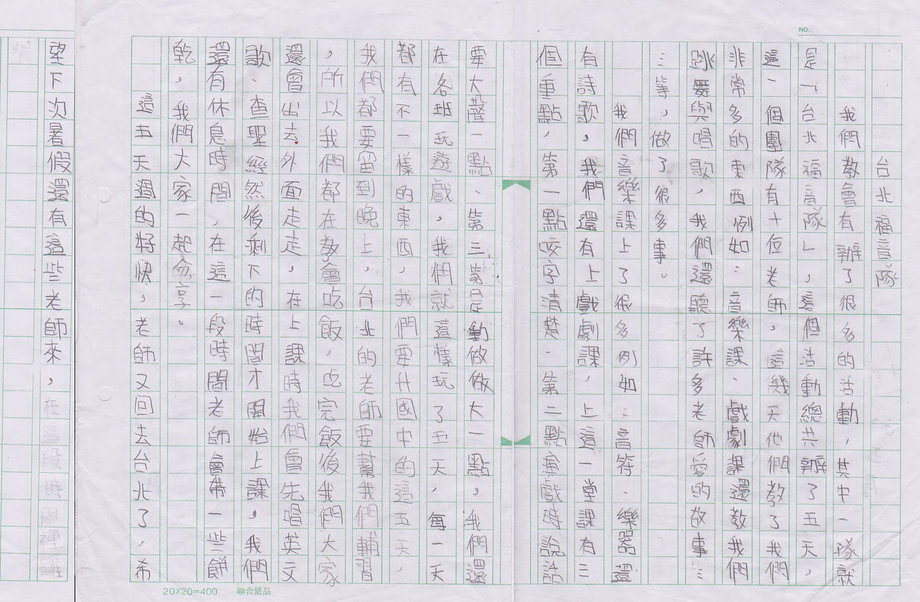 NO.
台北福音隊
我們教會有辦了很多的活動，其中一隊就
是「台北福音隊」，這個活動總共辦了五天，
這一個團隊有十位老師，這幾天他們教了我們
非常多的東西例如：音樂課、戲劇課還教我們
跳舞與唱歌，我們還聽了許多老師愛的故事…
…等，做了很多事。
我們音樂課上了很多例如：音符、樂器還
有詩歌，我們還有上戲劇課，上這一堂課有三
個重點，第一點咬字清楚、第二點演戲時說話
要大聲一點、第三點是動做做大一點，我們還
在各班玩遊戲，我們就這樣玩了五天，每一天
都有不一樣的東西，我們要升國中的這五天，
我們都要留到晚上，台北的老師要幫我們輔習
，所以我們都在教會吃飯，吃完飯後我們大家
還會出去外面走走，在上課時我們會先唱英文
歌、查聖經然後剩下的時間才開始上課，我們
還有休息時間，在這一段時間老師會帶一些餅
乾，我們大家一起分享。
這五天過的好快，老師又回去台北了，希
望下次暑假還有這些老師來，
20X20=400 聯合紙品